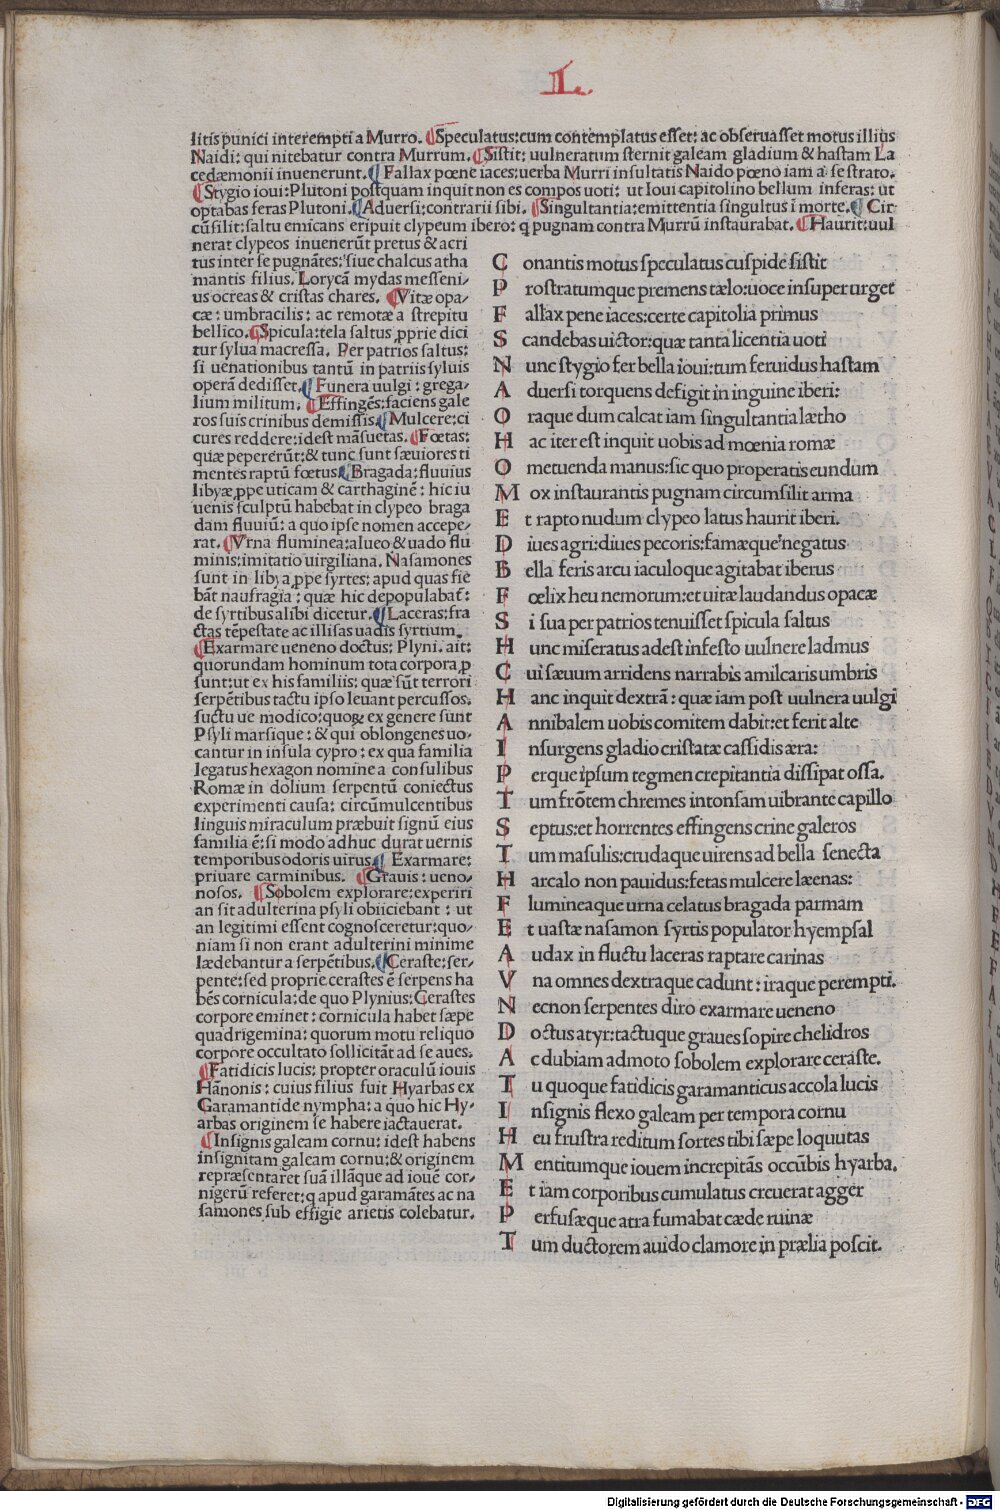 L.
litis punici interempti a Murro. ¶Speculatus:cum contemplatus esset: ac obseruasset motus illius
Naidi: qui nitebatur contra Murrum. ¶Sistit: uulneratum sternit galeam gladium & hastam La
cedæmonii inuenerunt. ¶Fallax pœne iaces:uerba Murri insultatis Naido pœno iam a se strato.
¶Stygio ioui:Plutoni postquam inquit non es compos uoti: ut Ioui capitolino bellum inferas: ut
optabas feras Plutoni. ¶Aduersi:contrarii sibi. ¶Singultantia:emittentia singultus ī morte. ¶Cir
cūsilit:saltu emicans eripuit clypeum ibero: q pugnam contra Murrū instaurabat. ¶Haurit:uul
nerat clypeos inuenerūt pretus & acri
tus inter se pugnātes:siue chalcus atha
mantis filius. Lorycā mydas messeni-
us ocreas & cristas chares. ¶Vitæ opa-
cæ: umbracilis: ac remotæ a strepitu
bellico. ¶Spicula:tela saltus ꝓprie dici
tur sylua macressa. Per patrios saltus:
si uenationibus tantū in patriis syluis
operā dedisset. ¶Funera uulgi: grega-
lium militum. ¶Effingēs:faciens gale
ros suis crinibus demissis. ¶Mulcere:ci
cures reddere:idest māsuetas. ¶Fœtas:
quæ pepererūt:& tunc sunt sæuiores ti
mentes raptū fœtus. ¶Bragada:fluuius
libyæ ꝓpe uticam & carthaginē: hic iu
uenis sculptū habebat in clypeo braga
dam fluuiū: a quo ipse nomen accepe-
rat. ¶Vrna fluminea:alueo & uado flu
minis:imitatio uirgiliana. Nasamones
sunt in libya ꝓpe syrtes: apud quas fie
bāt naufragia: quæ hic depopulabat̄:
de syrtibus alibi dicetur. ¶Laceras:fra
ctas tēpestate ac illisas uadis syrtium.
¶Exarmare ueneno doctus: Plyni. ait:
quorundam hominum tota corpora ꝓ
sunt:ut ex his familiis: quæ sūt terrori
serpētibus tactu ipso leuant percussos:
suctu ue modico:quoꝝ ex genere sunt
Psyli marsique: & qui oblongenes uo-
cantur in insula cypro: ex qua familia
legatus hexagon nomine a consulibus
Romæ in dolium serpentū coniectus
experimenti causa: circūmulcentibus
linguis miraculum præbuit signū eius
familia ē: si modo adhuc durat uernis
temporibus odoris uirus. ¶Exarmare:
priuare carminibus. ¶Grauis: ueno-
nosos. ¶Sobolem explorare:experiri
an sit adulterina psyli obiiciebant: ut
an legitimi essent cognosceretur:quo-
niam si non erant adulterini minime
lædebantur a serpētibus. ¶Ceraste:ser-
pente:sed proprie cerastes ē serpens ha
bēs cornicula: de quo Plynius: Cerastes
corpore eminet: cornicula habet sæpe
quadrigemina: quorum motu reliquo
corpore occultato sollicitāt ad se aues.
¶Fatidicis lucis: propter oraculū iouis
Hāmonis: cuius filius fuit Hyarbas ex
Garamantide nympha: a quo hic Hy-
arbas originem se habere iactauerat.
¶Insignis galeam cornu: idest habens
insignitam galeam cornu:& originem
repræsentaret suā illāque ad iouē cor-
nigerū referet:q apud garamātes ac na
samones sub effigie arietis colebatur.
C onantis motus speculatus cuspide sistit
P rostratumque premens tælo:uoce insuper urget
F allax pene iaces:certe capitolia primus
S candebas uictor:quæ tanta licentia uoti
N unc stygio fer bella ioui:tum feruidus hastam
A duersi torquens defigit in inguine iberi:
O raque dum calcat iam singultantia lætho
H ac iter est inquit uobis ad mœnia romæ
O metuenda manus:sic quo properatis eundum
M ox instaurantis pugnam circumsilit arma
E t rapto nudum clypeo latus haurit iberi.
D iues agri:diues pecoris:famæque negatus
B ella feris arcu iaculoque agitabat iberus
F œlix heu nemorum:et uitæ laudandus opacæ
S i sua per patrios tenuisset spicula saltus
H unc miseratus adest infesto uulnere ladmus
C ui sæuum arridens narrabis amilcaris umbris
H anc inquit dextrā: quæ iam post uulnera uulgi
A nnibalem uobis comitem dabit:et ferit alte
I nsurgens gladio cristatæ cassidis æra:
P erque ipsum tegmen crepitantia dissipat ossa.
T um frōtem chremes intonsam uibrante capillo
S eptus:et horrentes effingens crine galeros
T um masulis:crudaque uirens ad bella senecta
H arcalo non pauidus:fetas mulcere læenas:
F lumineaque urna celatus bragada parmam
E t uastæ nasamon syrtis populator hyempsal
A udax in fluctu laceras raptare carinas
V na omnes dextraque cadunt: iraque perempti.
N ecnon serpentes diro exarmare ueneno
D octus atyr:tactuque graues sopire chelidros
A c dubiam admoto sobolem explorare ceraste.
T u quoque fatidicis garamanticus accola lucis
I nsignis flexo galeam per tempora cornu
H eu frustra reditum sortes tibi sæpe loquutas
M entitumque iouem increpitās occūbis hyarba.
E t iam corporibus cumulatus creuerat agger
P erfusæque atra fumabat cæde ruinæ
T um ductorem auido clamore in prælia poscit.
Digitalisierung gefördert durch die Deutsche Forschungsgemeinschaft - DFG